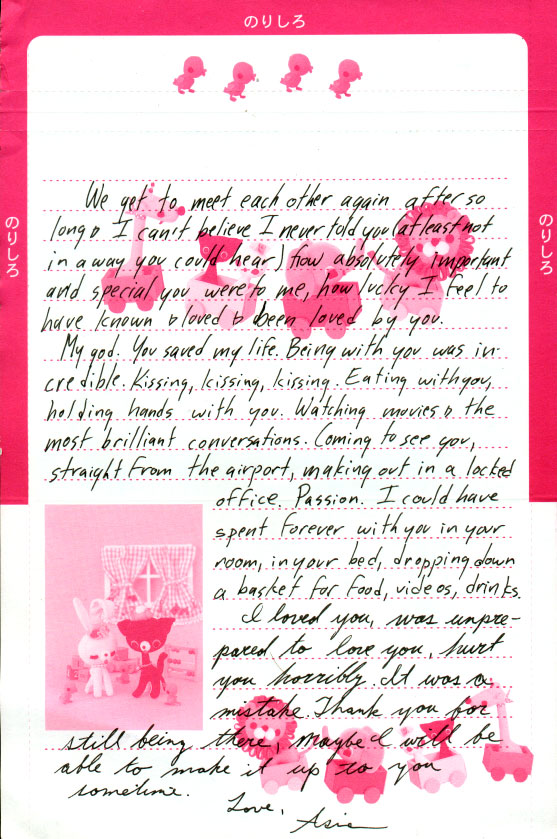 のりしろ
のりしろ
のりしろ
We get to meet each other again after so
long & I can't believe I never told you (at least not
in a way you could hear) how absolutely important
and special you were to me, how lucky I feel to
have known & loved & been loved by you.
My god. You saved my life. Being with you was in-
credible. Kissing, kissing, kissing. Eating with you,
holding hands with you. Watching movies & the
most brilliant conversations. Coming to see you,
straight from the airport, making out in a locked
office. Passion. I could have
spent forever with you in your
room, in your bed, dropping down
a basket for food, videos, drinks.
I loved you, was unpre-
pared to love you, hurt
you horribly. It was a
mistake. Thank you for
still being there, maybe I will be
able to make it up to you
sometime.
Love,
Asia